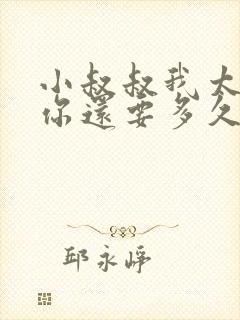 小叔叔我大
你還要多久
邱永崢